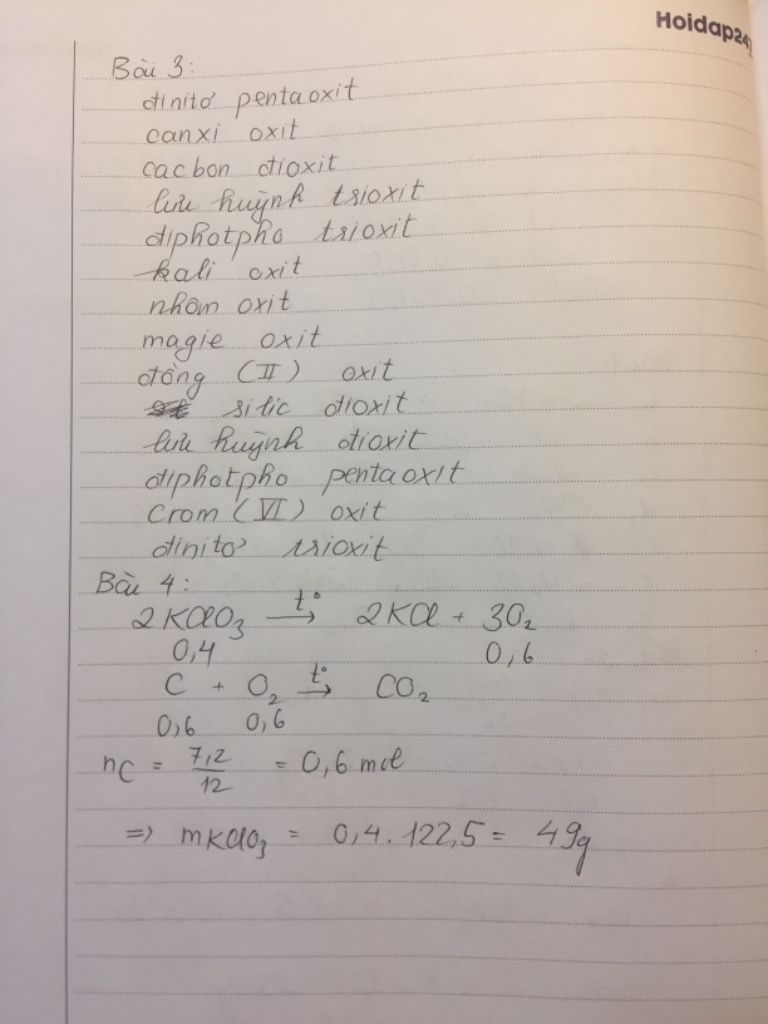 Hoidap247
Bài 3:
đinitơ pentaoxit
canxi oxit
cacbon đioxit
lưu huỳnh trioxit
điphotpho trioxit
kali oxit
nhôm oxit
magie oxit
đồng (II) oxit
silic đioxit
lưu huỳnh đioxit
điphotpho pentaoxit
Crom (VI) oxit
đinitơ trioxit
Bài 4:
2KClO₃ –t°→ 2KCl + 3O₂
0,4 0,6
C + O₂ –t°→ CO₂
0,6 0,6
nC = 7,2/12 = 0,6 mol
=> mKClO₃ = 0,4 . 122,5 = 49g